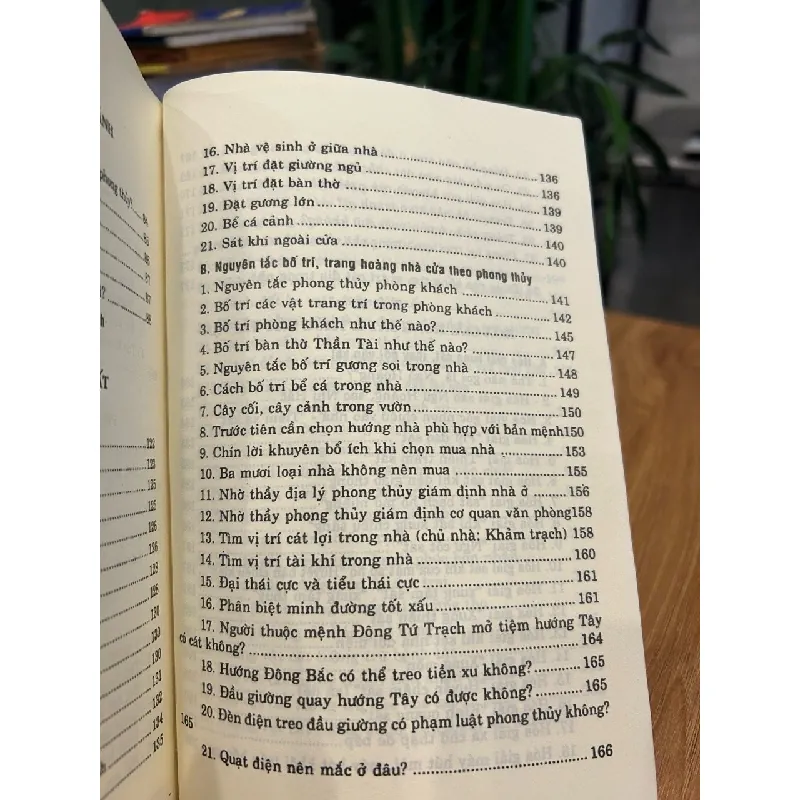 phong thủy?
84
85
86
87
87
88
ẤT
122
123
125
125
126
126
128
128
130
130
130
131
132
134
135
16. Nhà vệ sinh ở giữa nhà ........ 136
17. Vị trí đặt giường ngủ ........ 136
18. Vị trí đặt bàn thờ ........ 139
19. Đặt gương lớn ........ 139
20. Bể cá cảnh ........ 140
21. Sát khí ngoài cửa ........ 140
B. Nguyên tắc bố trí, trang hoàng nhà cửa theo phong thủy
1. Nguyên tắc phong thủy phòng khách ........ 141
2. Bố trí các vật trang trí trong phòng khách ........ 142
3. Bố trí phòng khách như thế nào? ........ 145
4. Bố trí bàn thờ Thần Tài như thế nào? ........ 147
5. Nguyên tắc bố trí gương soi trong nhà ........ 148
6. Cách bố trí bể cá trong nhà ........ 149
7. Cây cối, cây cảnh trong vườn ........ 150
8. Trước tiên cần chọn hướng nhà phù hợp với bản mệnh150
9. Chín lời khuyên bổ ích khi chọn mua nhà ........ 153
10. Ba mươi loại nhà không nên mua ........ 155
11. Nhờ thầy địa lý phong thủy giám định nhà ở ........ 156
12. Nhờ thầy phong thủy giám định cơ quan văn phòng158
13. Tìm vị trí cát lợi trong nhà (chủ nhà: Khảm trạch) 158
14. Tìm vị trí tài khí trong nhà ........ 160
15. Đại thái cực và tiểu thái cực ........ 161
16. Phân biệt minh đường tốt xấu ........ 161
17. Người thuộc mệnh Đông Tứ Trạch mở tiệm hướng Tây
có cát không? ........ 164
18. Hướng Đông Bắc có thể treo tiền xu không? ........ 165
19. Đầu giường quay hướng Tây có được không? ........ 165
20. Đèn điện treo đầu giường có phạm luật phong thủy không?
165
21. Quạt điện nên mắc ở đâu? ........ 166